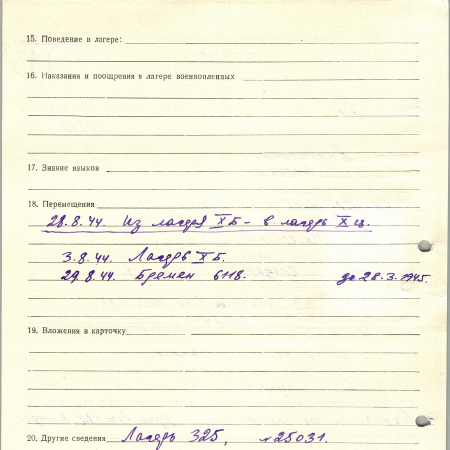 15. Поведение в лагере:
16. Наказания и поощрения в лагере военнопленных
17. Знание языков
18. Перемещения
28.8.44. Из лагеря XБ - в лагерь Xц.
3.8.44. Лагерь XБ.
29.8.44. Бремен 6118. до 28.3.1945.
19. Вложения в карточку
20. Другие сведения Лагерь 325, №25031.